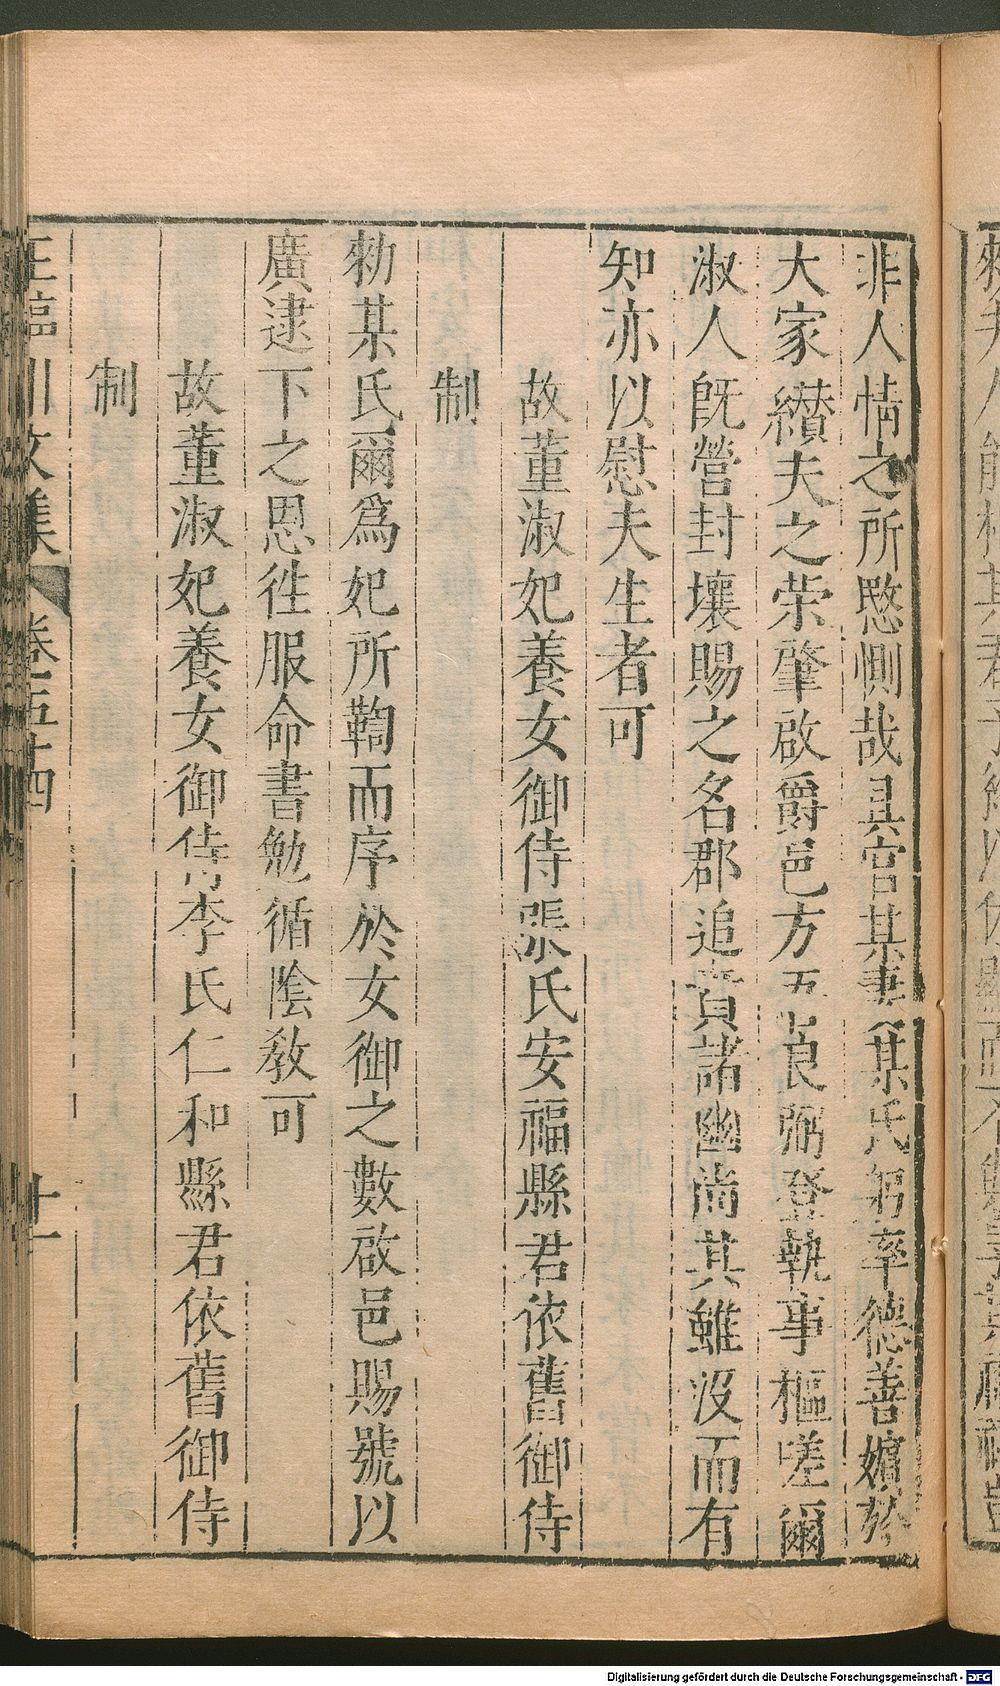 非人情之所愍惻哉具官某妻某氏躬率德善嬪於
大家纘夫之荣肇啟爵邑方五良弼登執事樞嗟爾
淑人旣營封壤賜之名郡追賁諸幽尚其雖没而有
知亦以慰夫生者可
故董淑妃養女御侍張氏安福縣君依舊御侍
制
勑某氏爾爲妃所鞫而序於女御之數啟邑賜號以
廣逮下之恩徃服命書勉循陰敎可
故董淑妃養女御侍李氏仁和縣君依舊御侍
制
王臨川文集 卷五十四 廿一
Digitalisierung gefördert durch die Deutsche Forschungsgemeinschaft - DFG